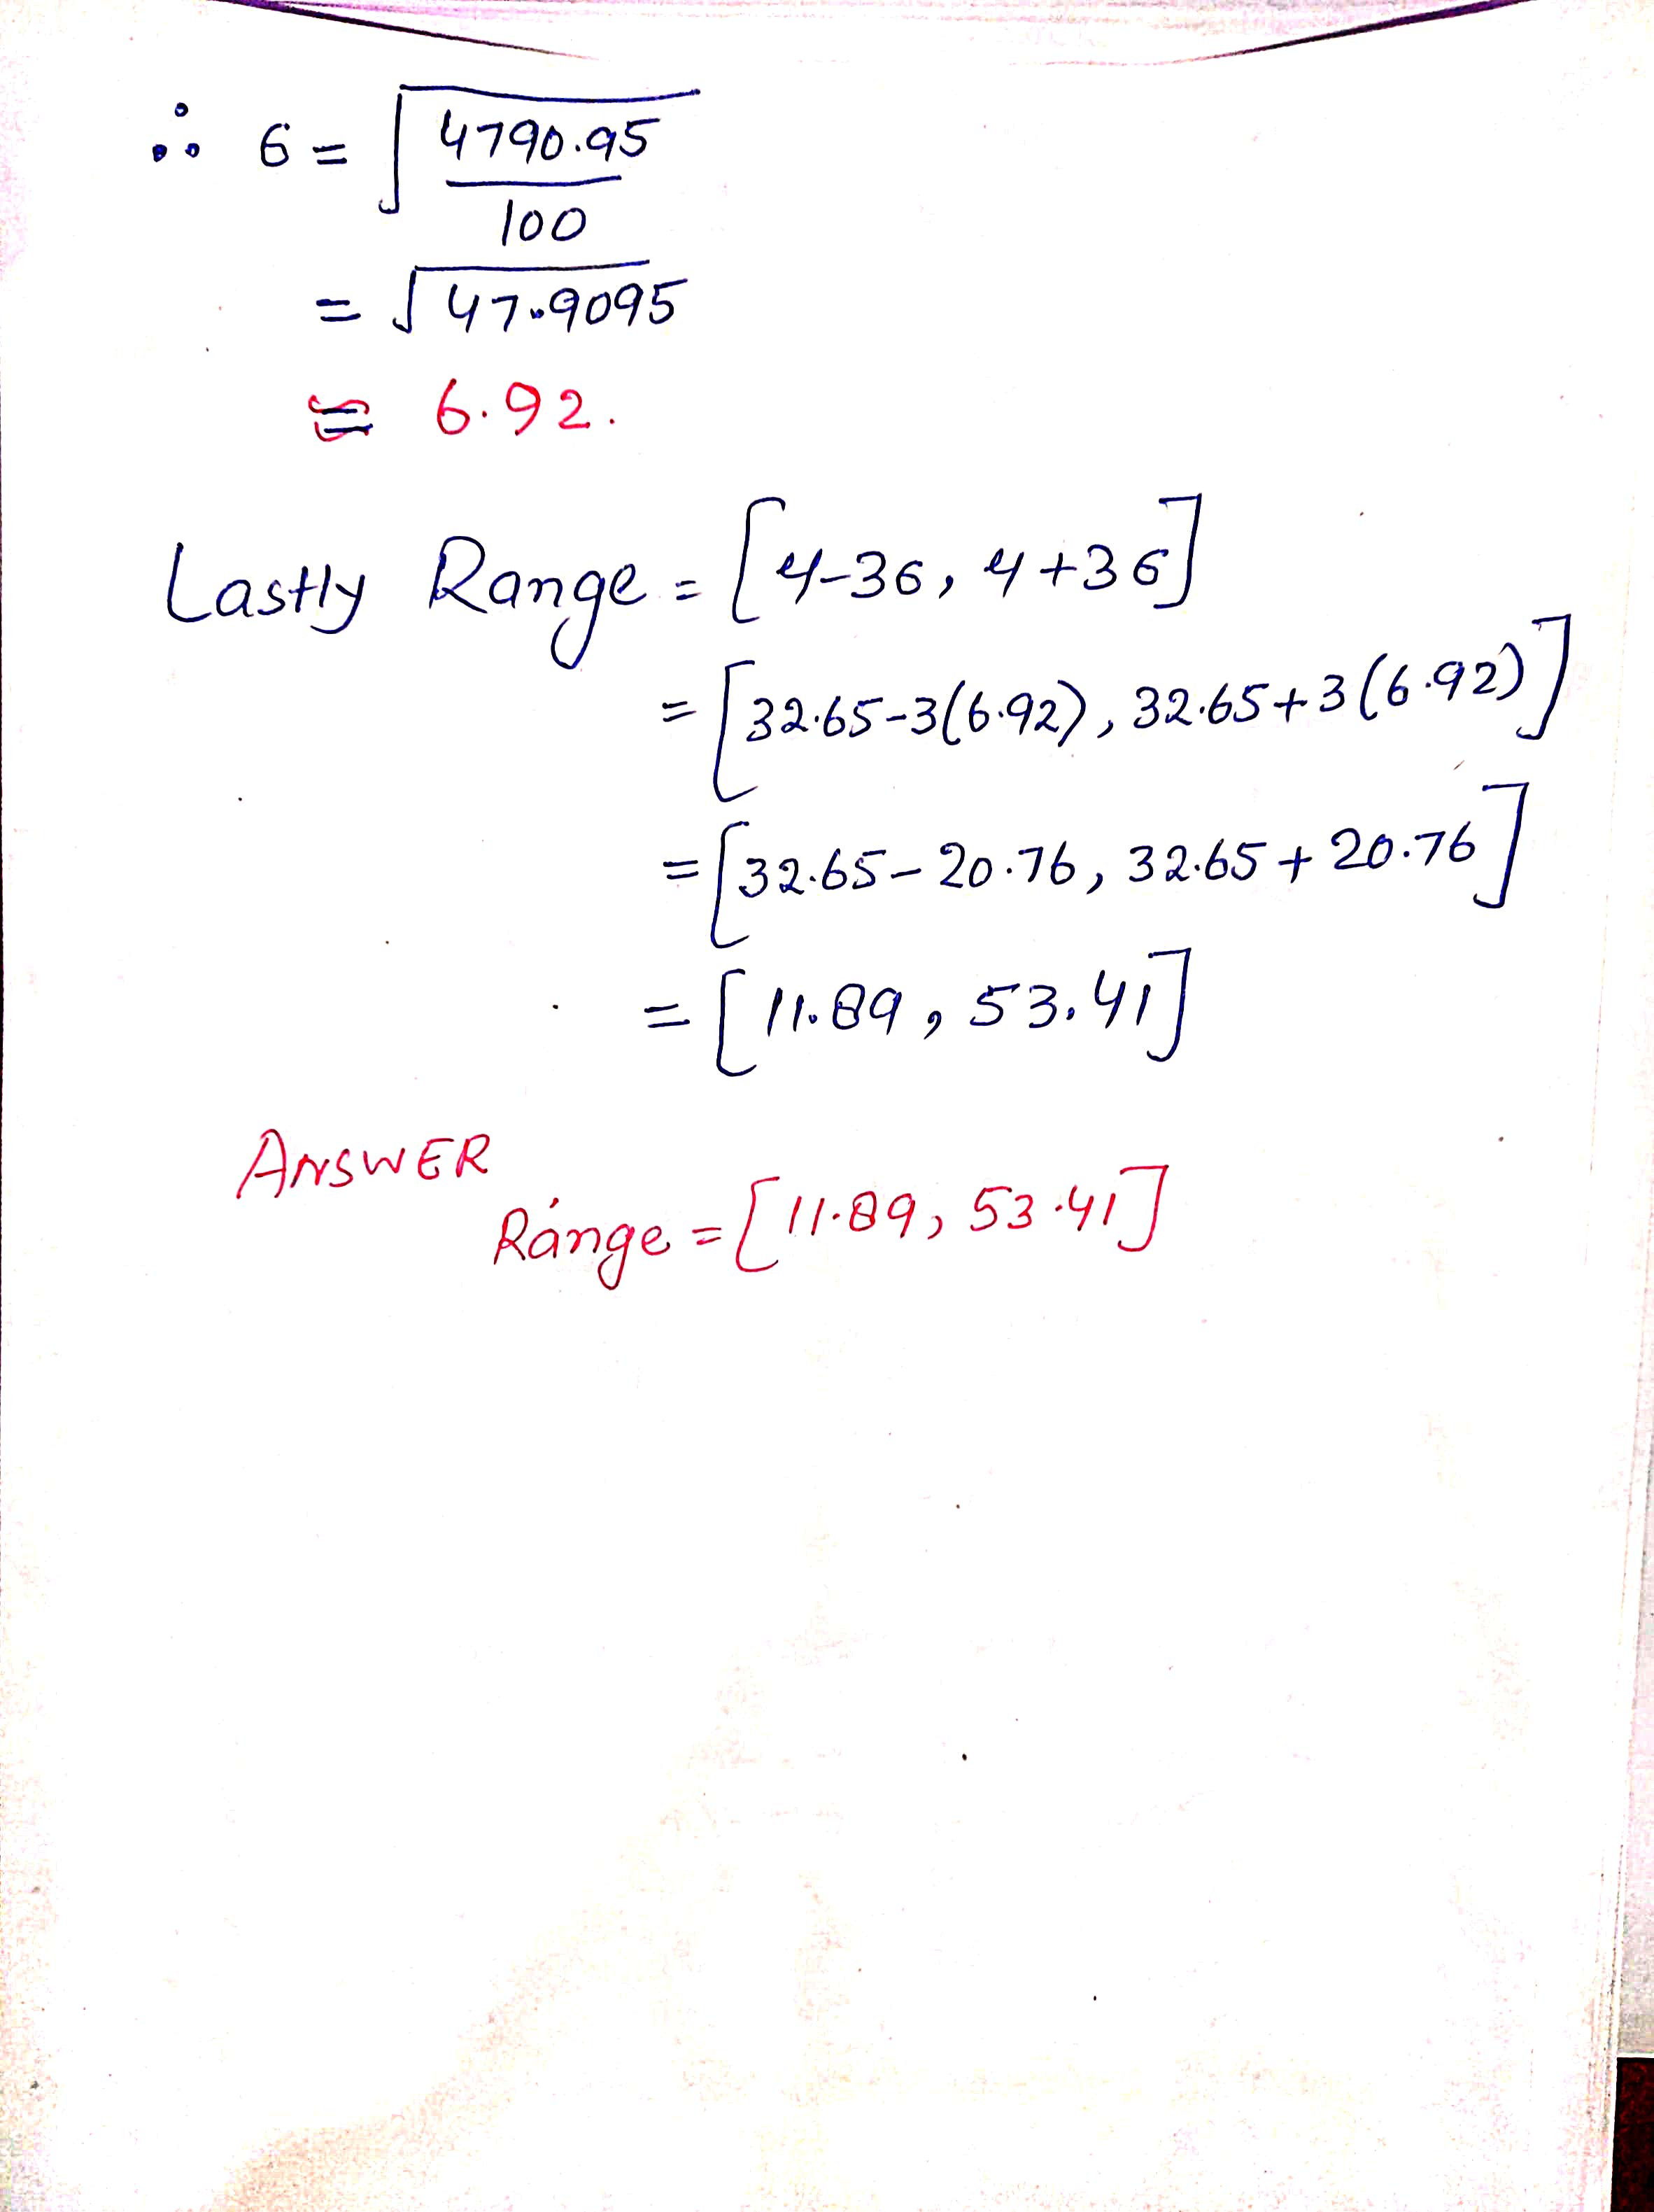 ∴ σ = √(4790.95/100)
= √47.9095
≅ 6.92.
Lastly Range = [μ-3σ, μ+3σ]
= [32.65-3(6.92), 32.65+3(6.92)]
= [32.65-20.76, 32.65+20.76]
= [11.89, 53.41]
ANSWER
Range = [11.89, 53.41]